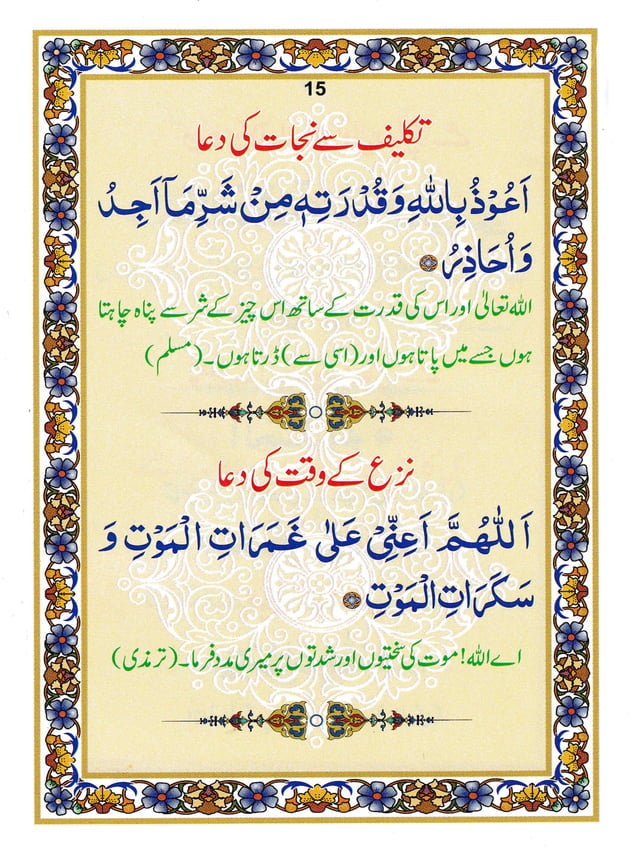 15
تکلیف سے نجات کی دعا
اَعُوْذُ بِاللهِ وَ قُدْرَتِهٖ مِنْ شَرِّ مَآ اَجِدُ
وَ اُحَاذِرُ
اللہ تعالیٰ اور اس کی قدرت کے ساتھ اس چیز کے شر سے پناہ چاہتا
ہوں جسے میں پاتا ہوں اور (اسی سے) ڈرتا ہوں۔ (مسلم)
نزع کے وقت کی دعا
اَللّٰهُمَّ اَعِنِّیْ عَلٰی غَمَرَاتِ الْمَوْتِ وَ
سَکَرَاتِ الْمَوْتِ
اے اللہ! موت کی سختیوں اور شدتوں پر میری مدد فرما۔ (ترمذی)